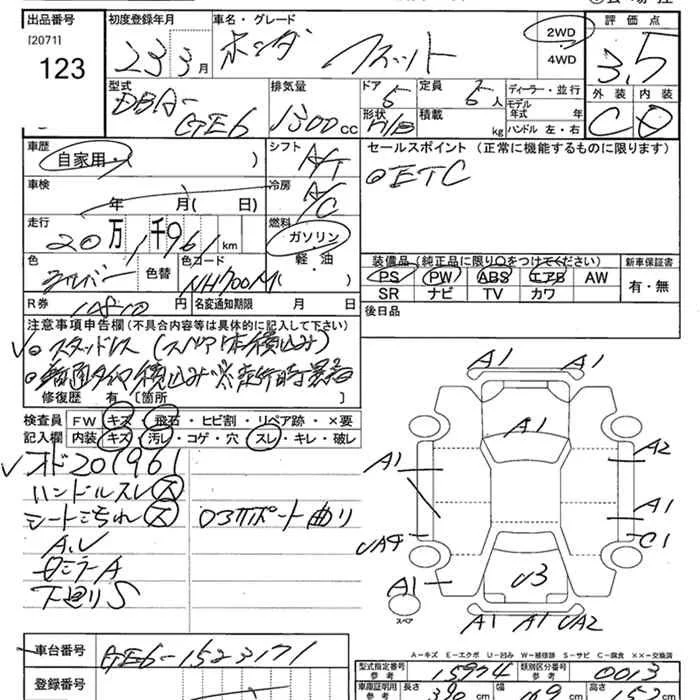 出品番号 初度登録年月 車名・グレード 2WD 評価点
[2071]
123 23 3月 ホンダ フィット 4WD 3.5
型式 排気量 ドア 定員 ディーラー・並行 外装 内装
DBA-GE6 1300cc 5 5人 モデル年式 年 C D
形状 H/B 積載 kg ハンドル 左・右
車歴 シフト セールスポイント (正常に機能するものに限ります)
自家用 ( ) A/T ETC
車検 冷房
年 月( 日) A/C
走行 燃料
20万1千961km ガソリン 装備品(純正品に限り○をつけてください) 新車保証書
色 色替 色コード 軽・油 PS PW ABS エアB AW 有・無
シルバー NH700M ( ) SR ナビ TV カワ
R券 円 名変通知期限 月 日 後日品
注意事項申告欄(不具合内容等は具体的に記入して下さい)
スタッドレス
修復歴 有 〔箇所 〕
検査員 FW キズ・飛石・ヒビ割・リペア跡・×要
記入欄 内装 キズ・汚レ・コゲ・穴・スレ・キレ・破レ
オド201961
ハンドルスレ
シートこぢれ
A.U
ミラーA
下廻りS
ポート曲り
A1 A1
A1
A1 A2
A1
UA4 C1
A1 U3
スペア A1 A1 UA2
A-キズ E-エクボ U-凹み W-補修跡 S-サビ C-腐食 ××-交換済
車台番号 GE6-1523171
型式指定番号 参考 15974 類別区分番号 参考 0013
登録番号 車庫証明用 参考 長さ 390cm 幅 169cm 高さ 152cm